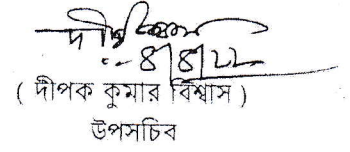 ৪/৪/২২
( দীপক কুমার বিশ্বাস )
উপসচিব